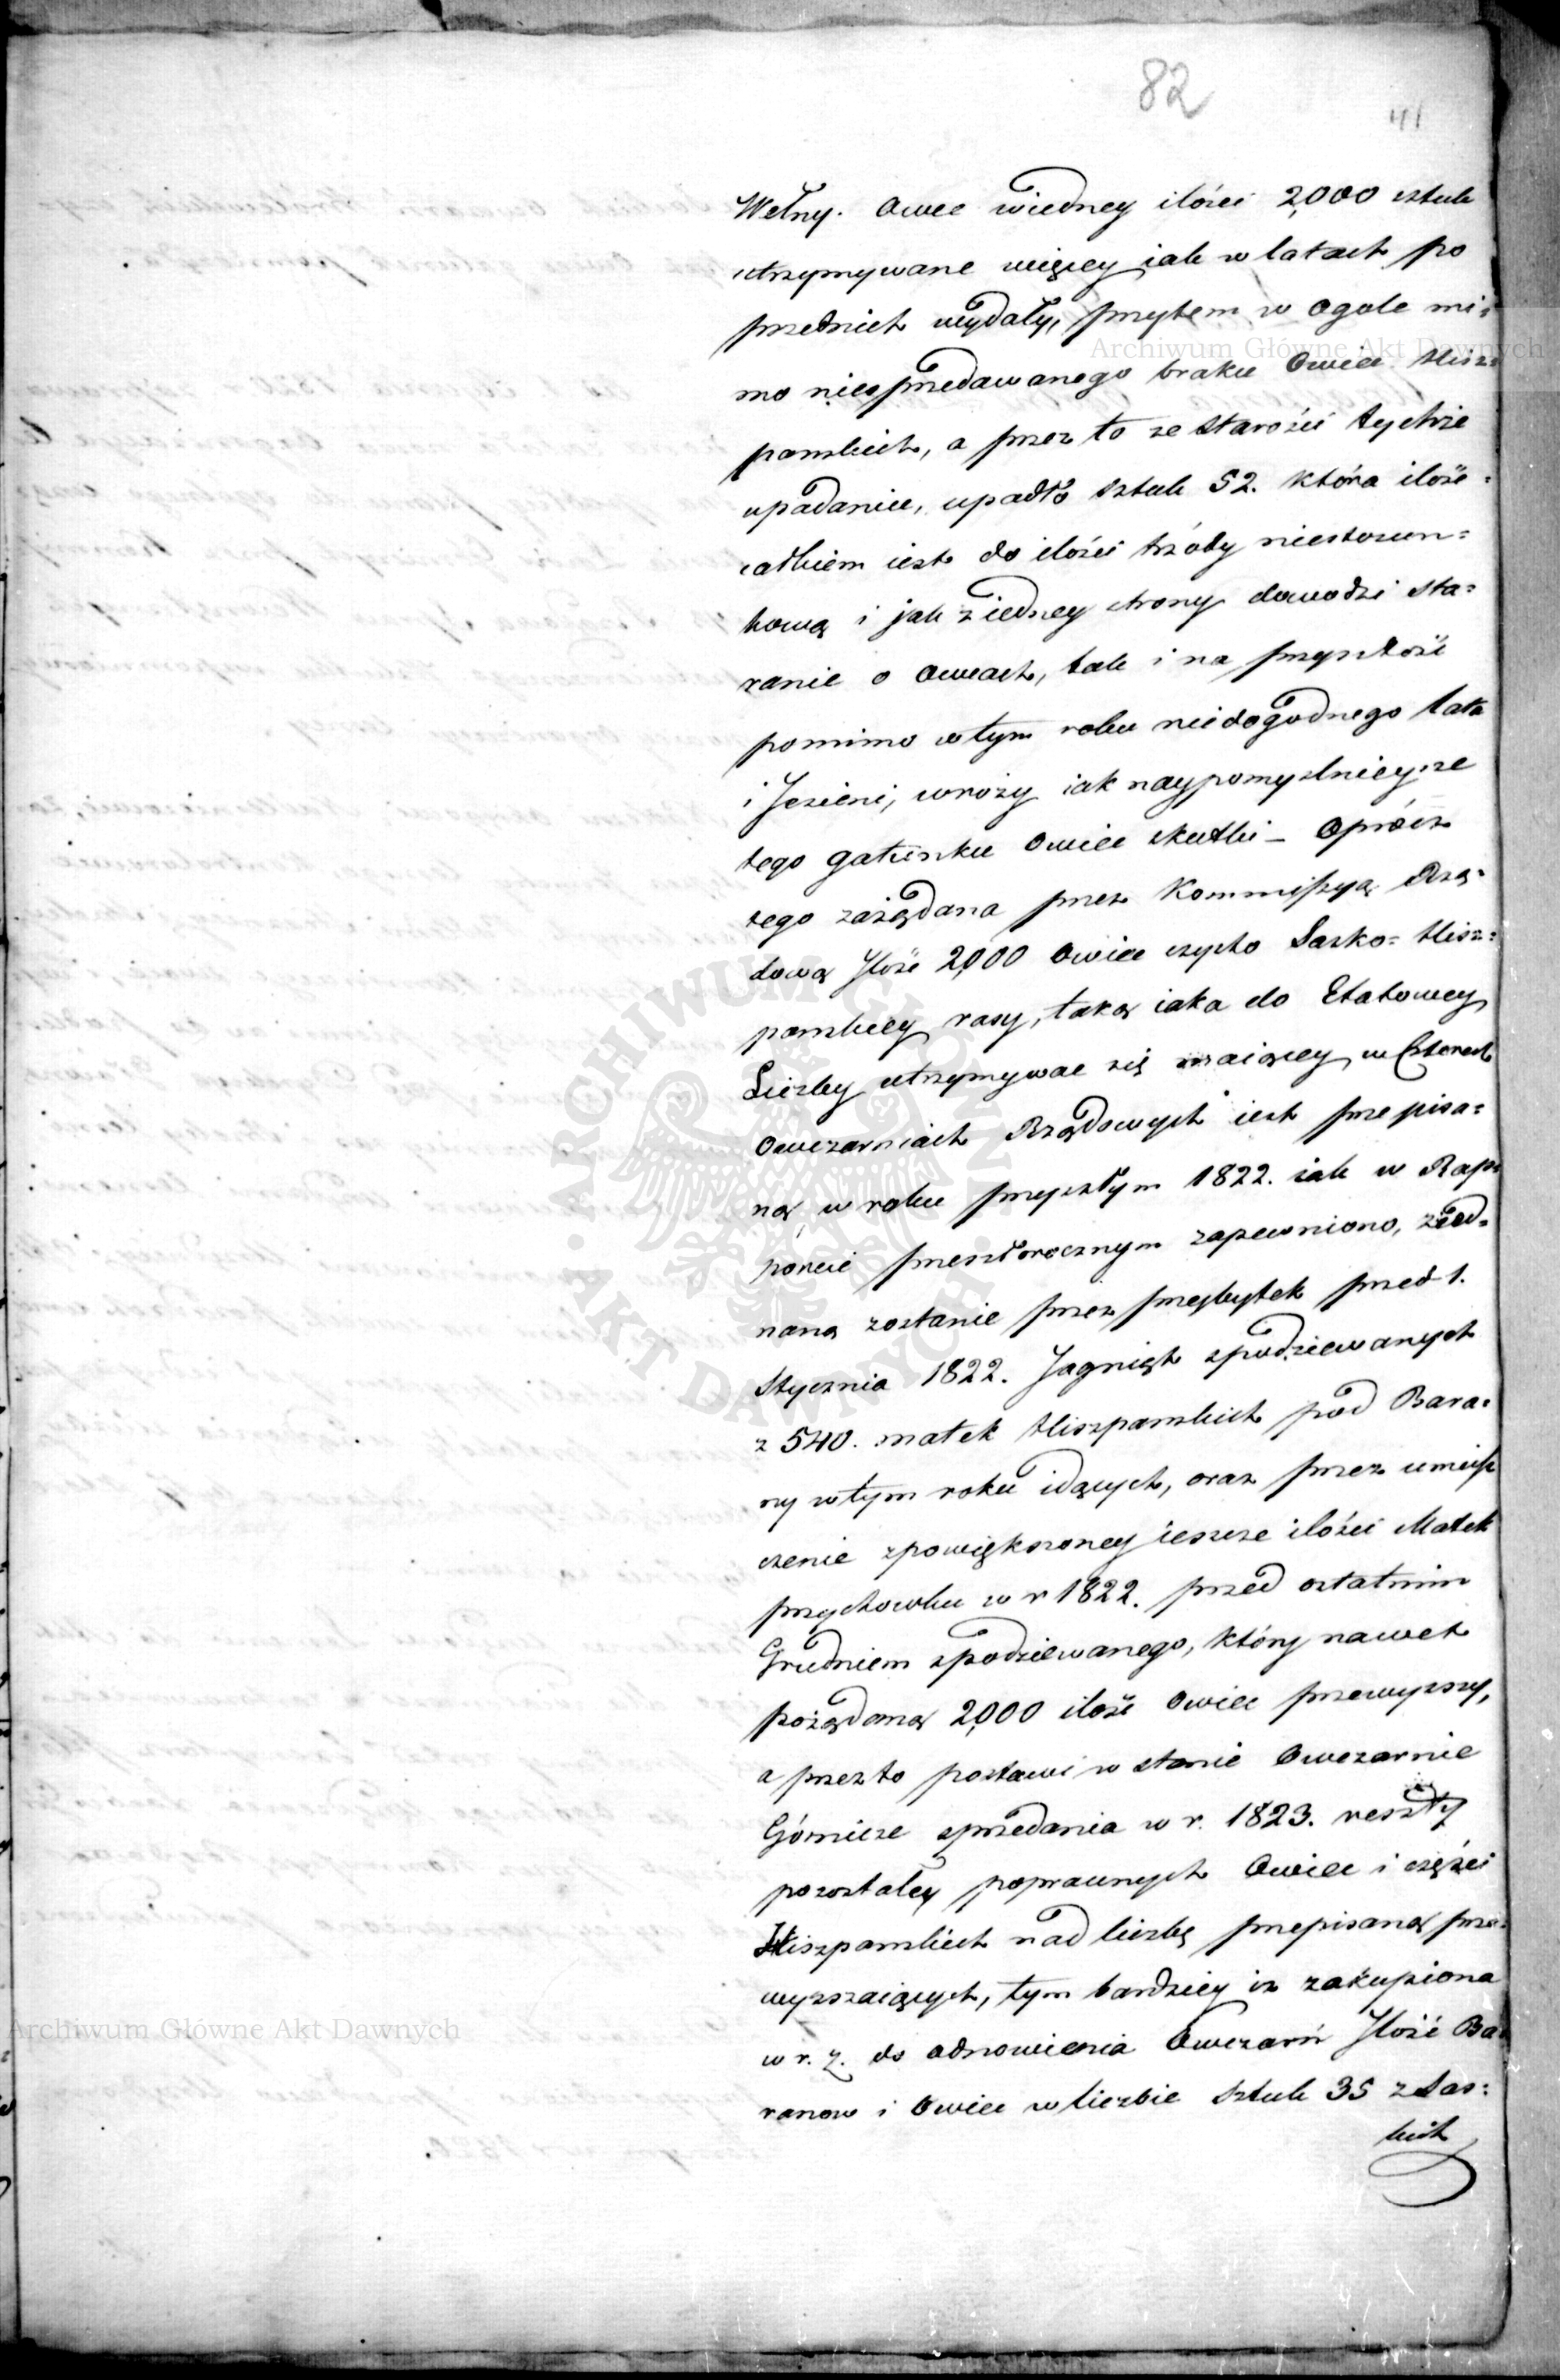 82
41
Wełny. Owce wiedney ilości 2,000 sztuk
utrzymywane więcey iak w latach po
przednich wydały, przytem w ogole mi=
mo niesprzedawanego braku Owiec Hisz=
pańskich, a przez to ze starości tychże
upadanie, upadło sztuk 52. która ilość
całkiem iest do ilości trzody niestosun=
kową i jak z iedney strony dowodzi sta=
ranie o Owcach, tak i na przyszłość
pomimo w tym roku niedogodnego lata
i Jesieni, wroży iak naypomyślnieysze
tego gatunku Owiec skutki – Oprócz
tego zażądana przez Kommissyą Rzą=
dową Ilość 2,000 Owiec czysto Sasko=Hisz=
pańskiey rasy, taką iaka do Etatowey
Liczby utrzymywac się maiącey w Czterech
Owczarniach Rządowych iest przepisa=
ną w roku przyszłym 1822. iak w Rap=
porcie przeszłorocznym zapewniono, zied=
naną zostanie przez przybytek przed 1.
Stycznia 1822. Jagniąt spodziewanych
z 540. matek Hiszpańskich pod Bara=
ny w tym roku idących, oraz przez umieś
czenie zpowiększoney ieszcze ilości Matek
przychowku w r 1822. przed ostatnim
Grudniem spodziewanego, który nawet
pożądaną 2,000 ilość Owiec przewyższy,
a przez to postawi w stanie Owczarnie
Górnicze sprzedania w r. 1823. reszty
pozostałey poprawnych Owiec i części
Hiszpańskich nad liczbę przepisaną prze=
wyższaiących, tym bardziey iż zakupiona
w r. z. do odnowienia Owczarń Ilość Ba=
ranow i Owiec w liczbie Sztuk 35 z Sas=
kich
Archiwum Główne Akt Dawnych
Archiwum Główne Akt Dawnych
ARCHIWUM GŁÓWNE · AKT DAWNYCH ·